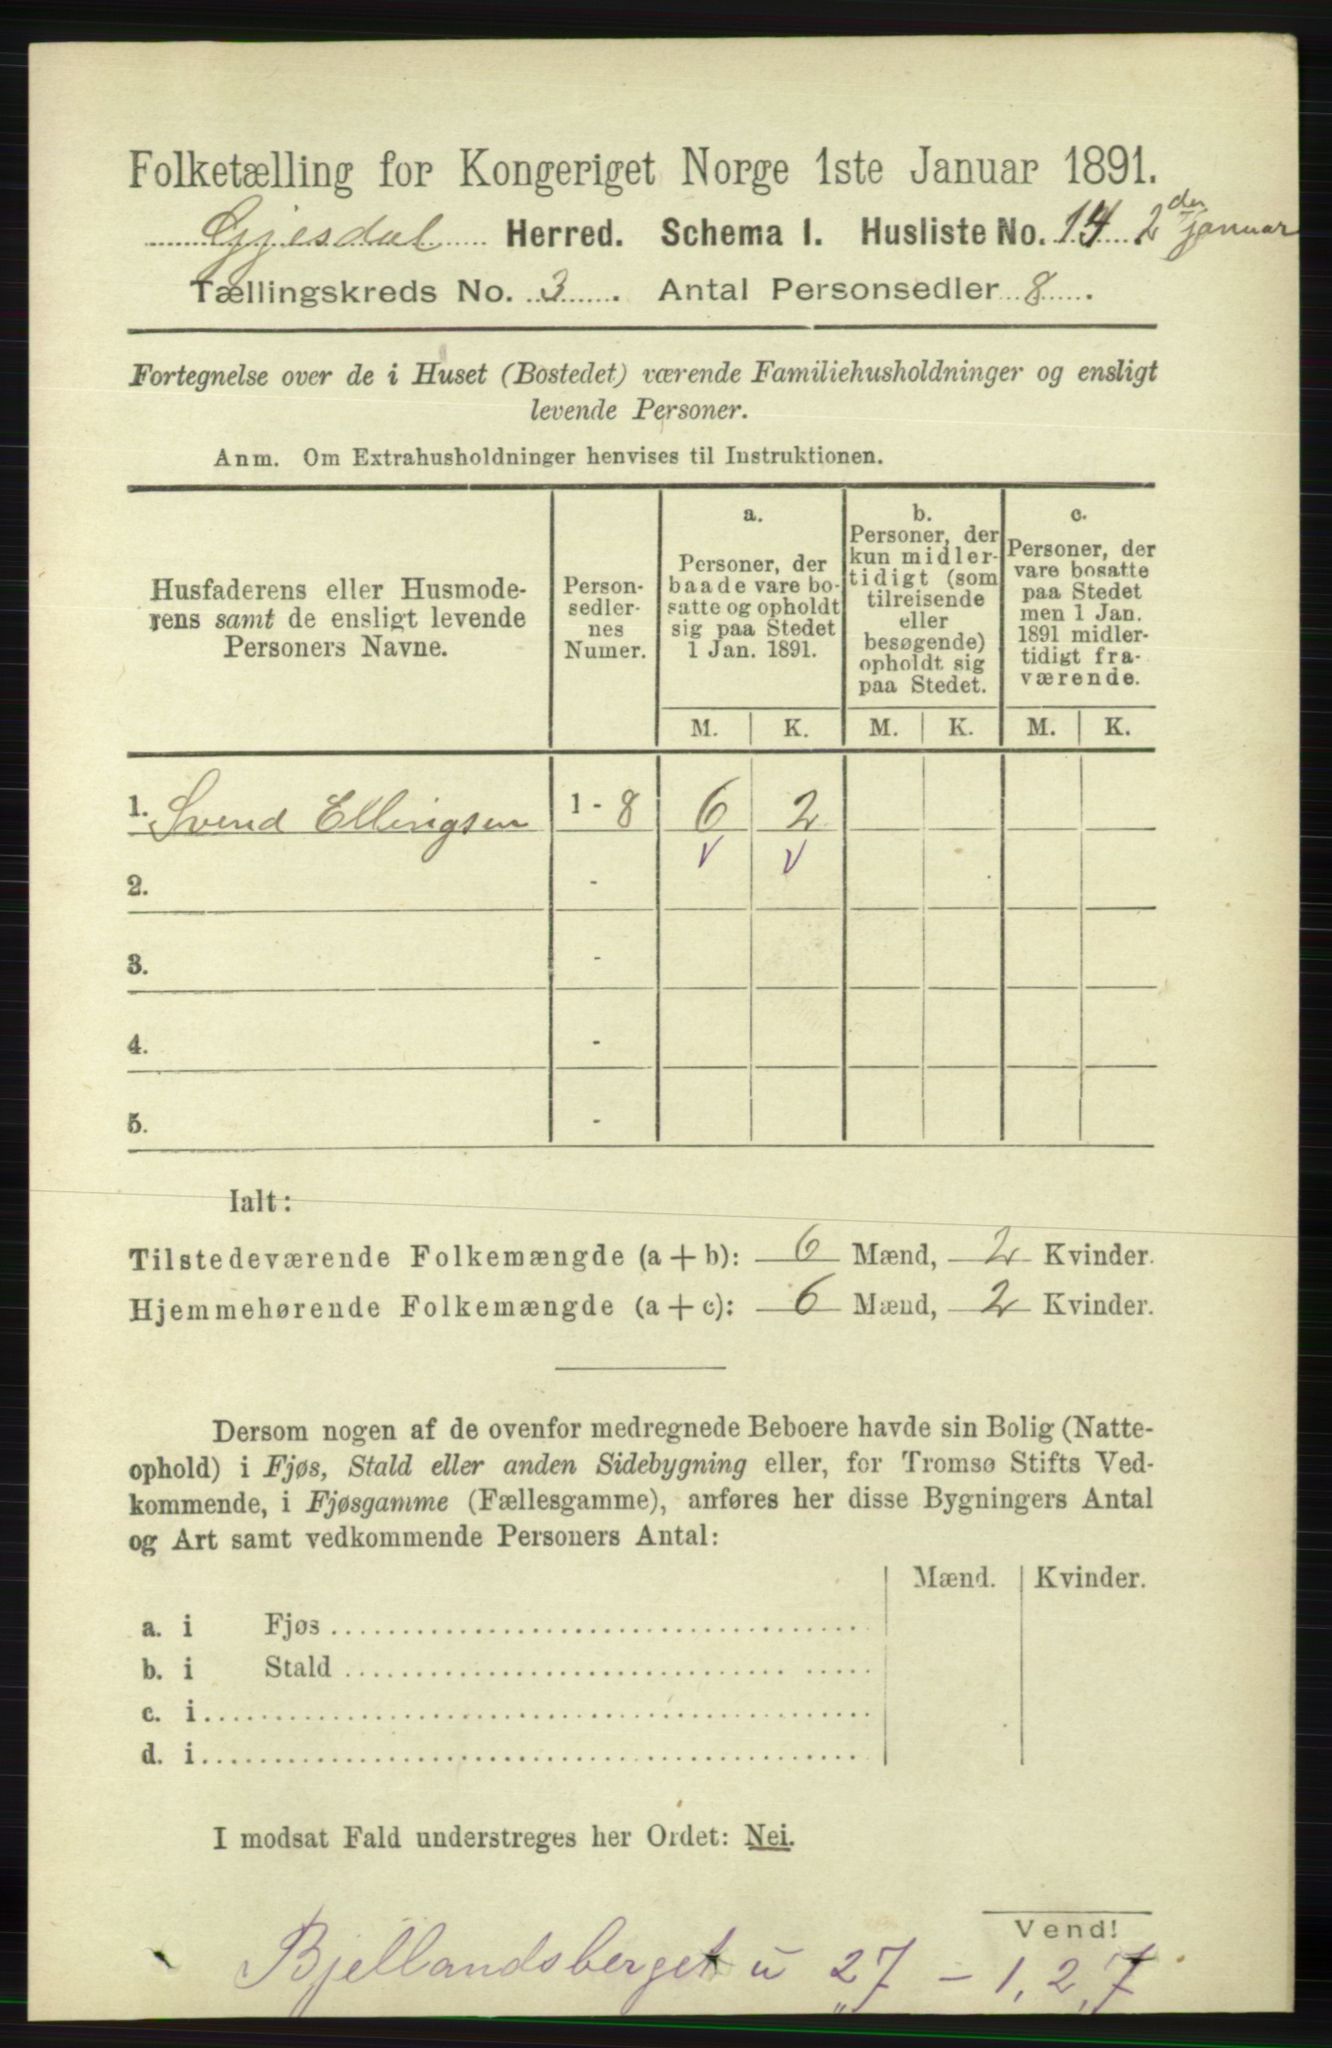 Folketælling for Kongeriget Norge 1ste Januar 1891.
Gjesdal Herred. Schema I. Husliste No. 14 2den januar
Tællingskreds No. 3. Antal Personsedler 8.
Fortegnelse over de i Huset (Bostedet) værende Familiehusholdninger og ensligt
levende Personer.
Anm. Om Extrahusholdninger henvises til Instruktionen.
Husfaderens eller Husmode-
rens samt de ensligt levende
Personers Navne.
Person-
sedler-
nes
Numer.
a.
Personer, der
baade vare bo-
satte og opholdt
sig paa Stedet
1 Jan. 1891.
b.
Personer, der
kun midler-
tidigt (som
tilreisende
eller
besøgende)
opholdt sig
paa Stedet.
c.
Personer, der
vare bosatte
paa Stedet
men 1 Jan.
1891 midler-
tidigt fra-
værende.
M. K. M. K. M. K.
1. Svend Ellingsen 1 - 8 6 2
v v
2. -
3. -
4. -
5. -
Ialt:
Tilstedeværende Folkemængde (a + b): 6 Mænd, 2 Kvinder.
Hjemmehørende Folkemængde (a + c): 6 Mænd, 2 Kvinder.
Dersom nogen af de ovenfor medregnede Beboere havde sin Bolig (Natte-
ophold) i Fjøs, Stald eller anden Sidebygning eller, for Tromsø Stifts Ved-
kommende, i Fjøsgamme (Fællesgamme), anføres her disse Bygningers Antal
og Art samt vedkommende Personers Antal:
Mænd. Kvinder.
a. i Fjøs
b. i Stald
c. i
d. i
I modsat Fald understreges her Ordet: Nei.
Vend!
Bjellandsberget u 27 - 1,2,7